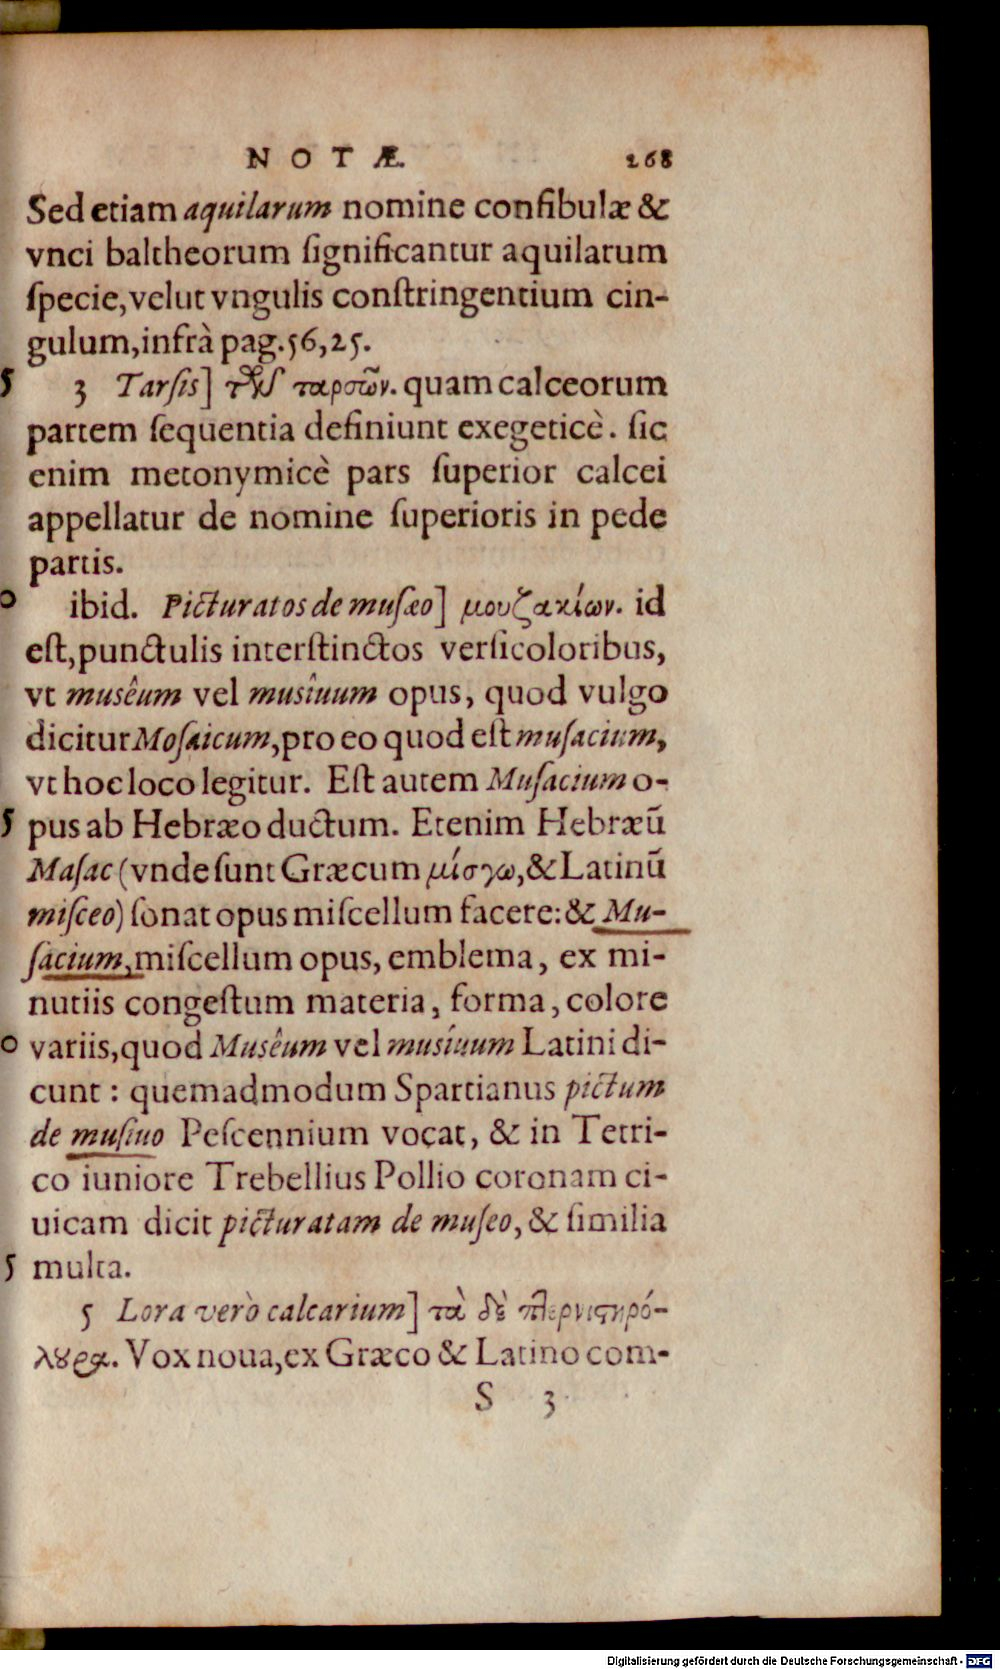 NOTÆ. 268
Sed etiam aquilarum nomine confibulæ &
vnci baltheorum ſignificantur aquilarum
ſpecie, velut vngulis conſtringentium cin-
gulum, infrà pag. 56, 25.
5 3 Tarſis] τῆς ταρσῶν. quam calceorum
partem ſequentia definiunt exegeticè. ſic
enim metonymicè pars ſuperior calcei
appellatur de nomine ſuperioris in pede
partis.
0 ibid. Picturatos de muſæo] μουζακίων. id
eſt, punctulis interſtinctos verſicoloribus,
vt musêum vel musîuum opus, quod vulgo
dicitur Moſaicum, pro eo quod eſt muſacium,
vt hoc loco legitur. Eſt autem Muſacium o-
5 pus ab Hebræo ductum. Etenim Hebræū
Maſac (vnde ſunt Græcum μίσγω, & Latinū
miſceo) ſonat opus miſcellum facere: & Mu-
ſacium, miſcellum opus, emblema, ex mi-
nutiis congeſtum materia, forma, colore
0 variis, quod Musêum vel musíuum Latini di-
cunt: quemadmodum Spartianus pictum
de muſiuo Peſcennium vocat, & in Tetri-
co iuniore Trebellius Pollio coronam ci-
uicam dicit picturatam de muſeo, & ſimilia
5 multa.
5 Lora verò calcarium] τὰ δὲ πτερνιστηρό-
λουρα. Vox noua, ex Græco & Latino com-
S 3
Digitalisierung gefördert durch die Deutsche Forschungsgemeinschaft - DFG